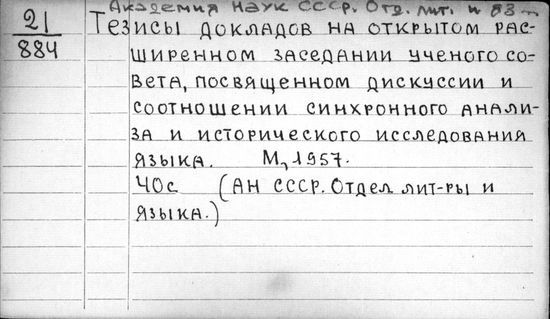 Академия Наук СССР. Отд. лит. и яз-
21
884
Тезисы докладов на открытом рас-
ширенном заседании ученого со-
вета, посвященном дискуссии и
соотношении синхронного анали-
за и исторического исследования
языка. М., 1957.
40с (АН СССР. Отдел лит-ры и
языка.)